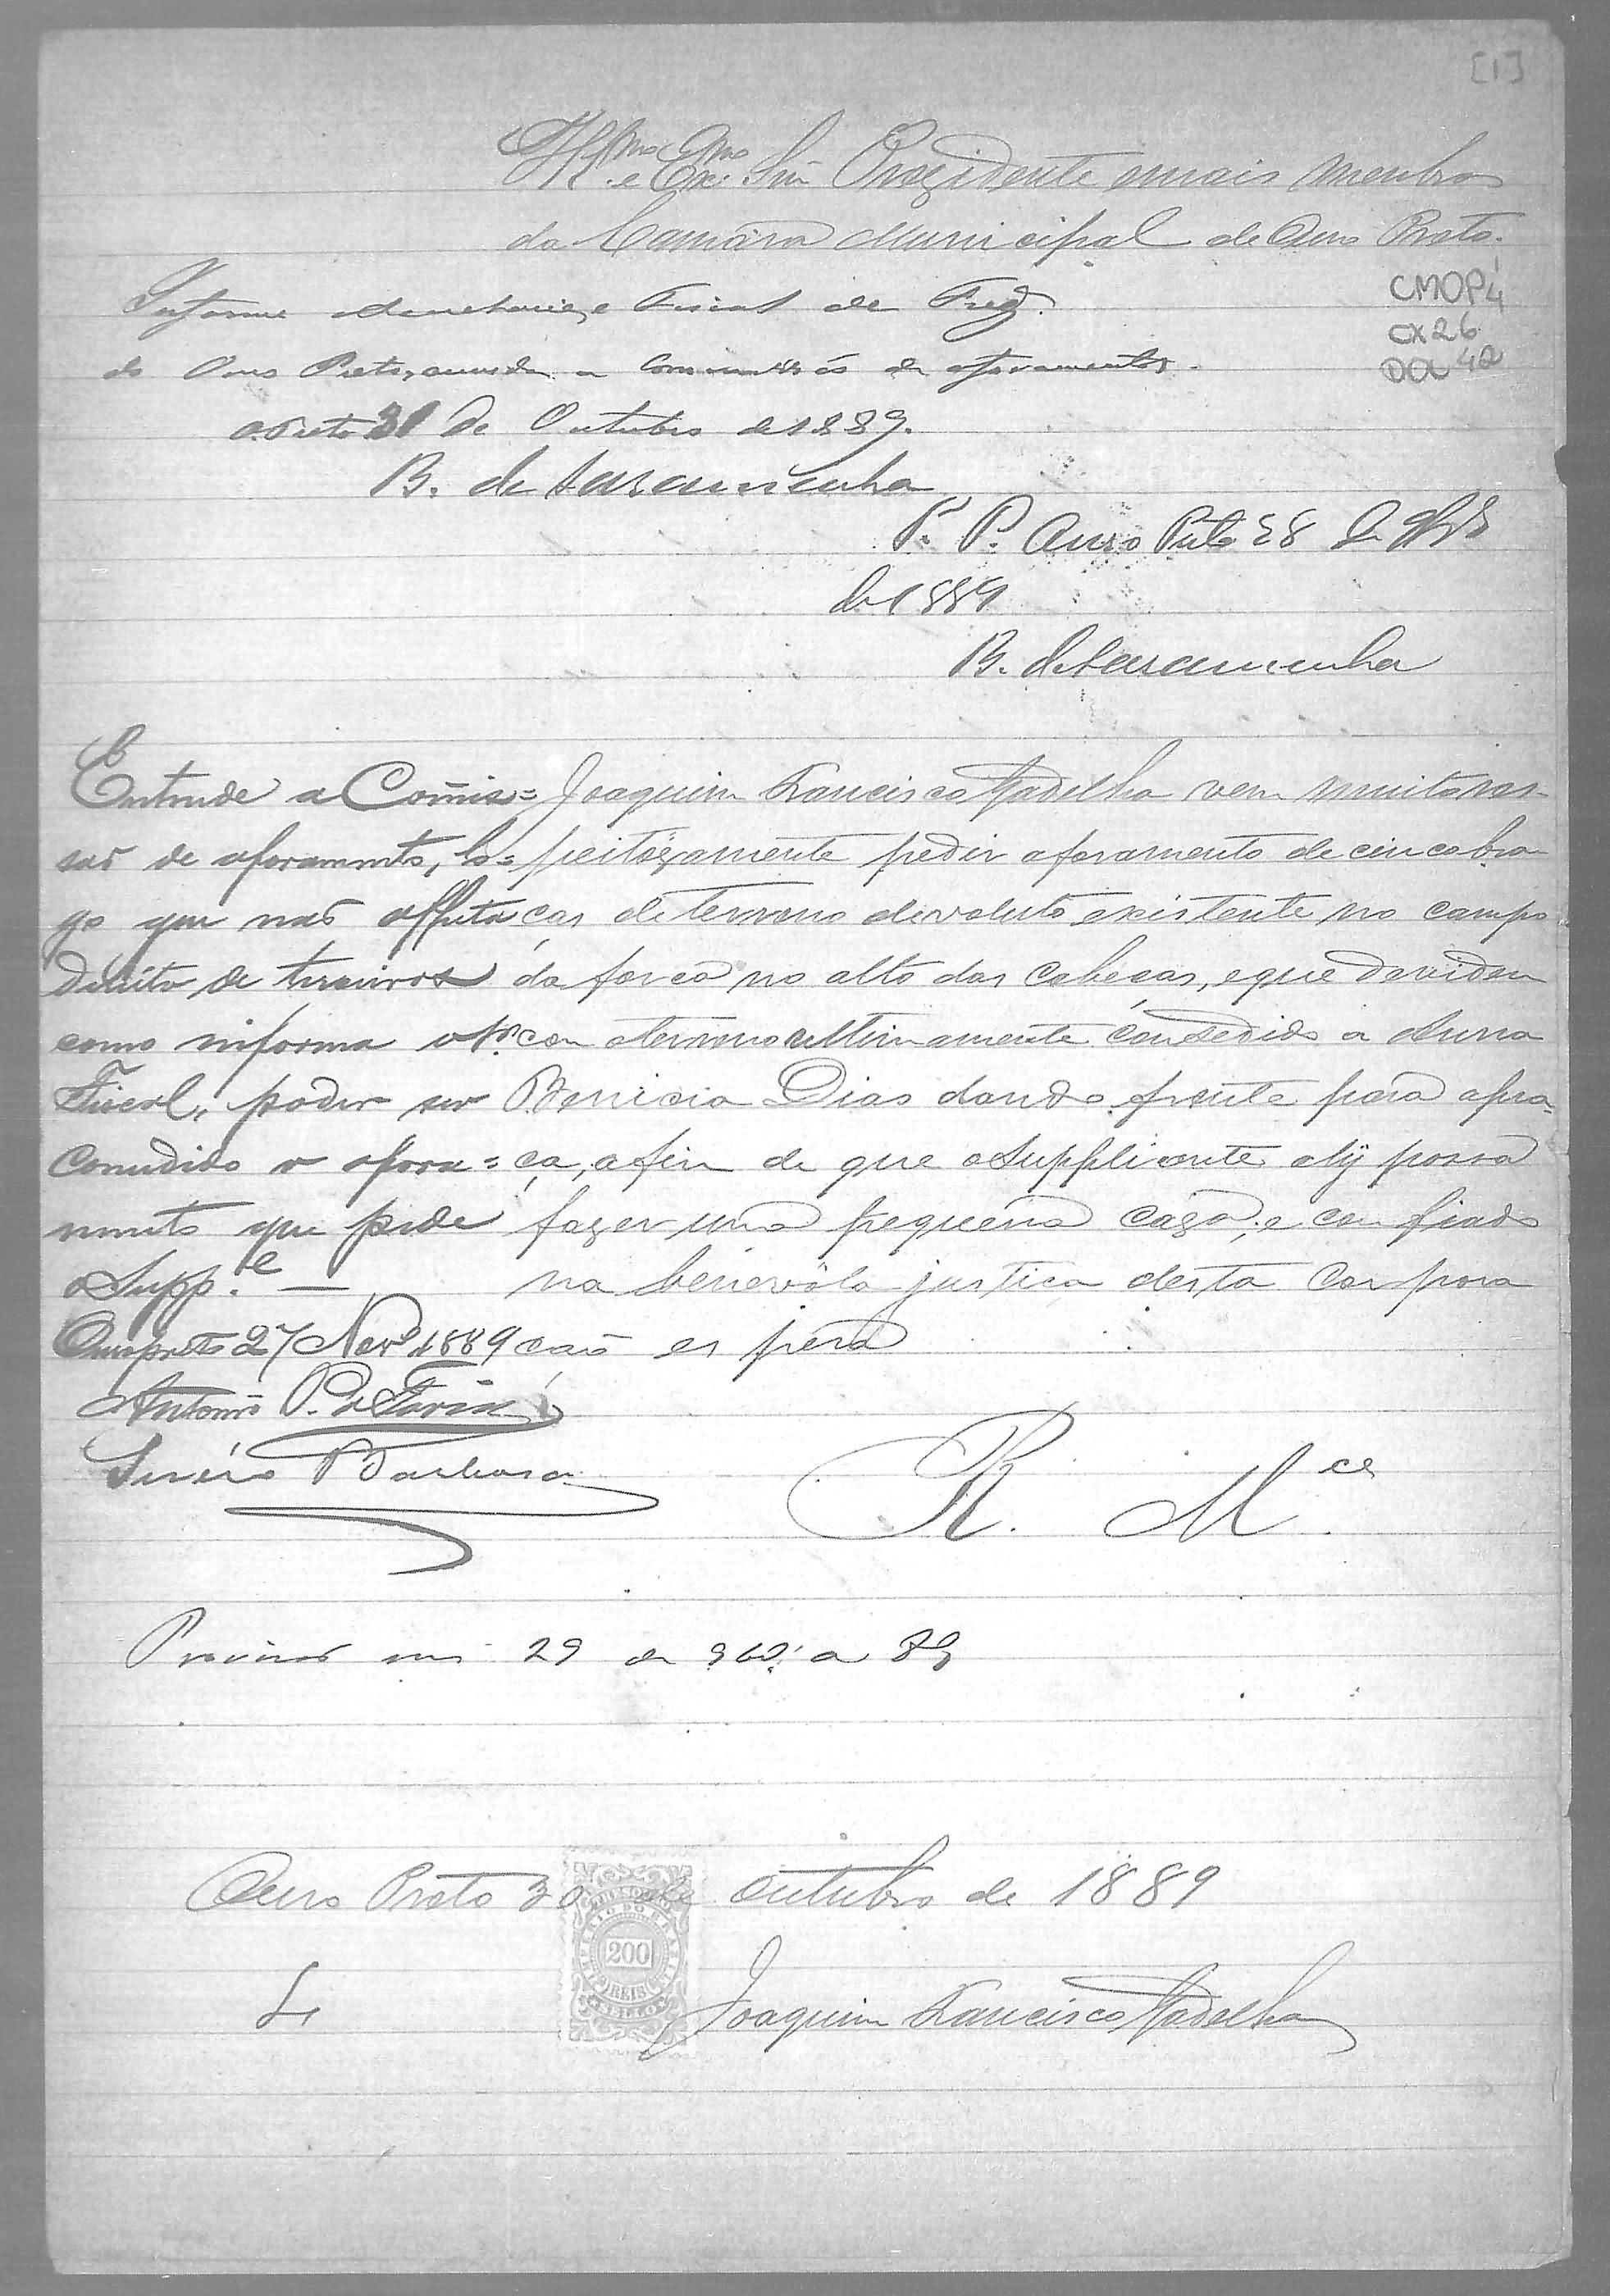 [1]
Illmo e Exmo Snr Prezidente emais membros
da Camâra Municipal de Ouro Preto.
CMOP4
CX26
DOC 42
Informe a Contadoria, e Fiscal de Freg.
do Ouro Preto, ouvida a Commissão de aforamentos.
O. Preto 31 de Outubro de 1889.
B. de Saramenha
P. P. Ouro Preto 28 de
de 1889
B. de Saramenha
Entende a Comis=
são de aforamento, lo=
go que não affecta
direito de terceiros
como informa o Sr.
Fiscal, poder ser
Concedido o afora=
mento que pede
o Supp.e —
Ouropreto 27 Nov.o 1889
Antonio P. de Faria
Barbosa
Joaquim Francisco Gadelha vem muito res-
peitozamente pedir aforamento de cinco bra
ças de terreno devoluto existente no campo
da forca no alto das Cabeças, e que devidem
com oterreno ultimamente consedido a Anna
Benicia Dias dando frente para apra-
ça, afim de que oSupplicante aly possa
fazer uma pequena caza, e confiado
na benevola justiça desta Corpora
ção espera
R. M.ce
29 de 9br.o a 89
Ouro Preto 30 de outubro de 1889
200
REIS
Joaquim Francisco Gadelha